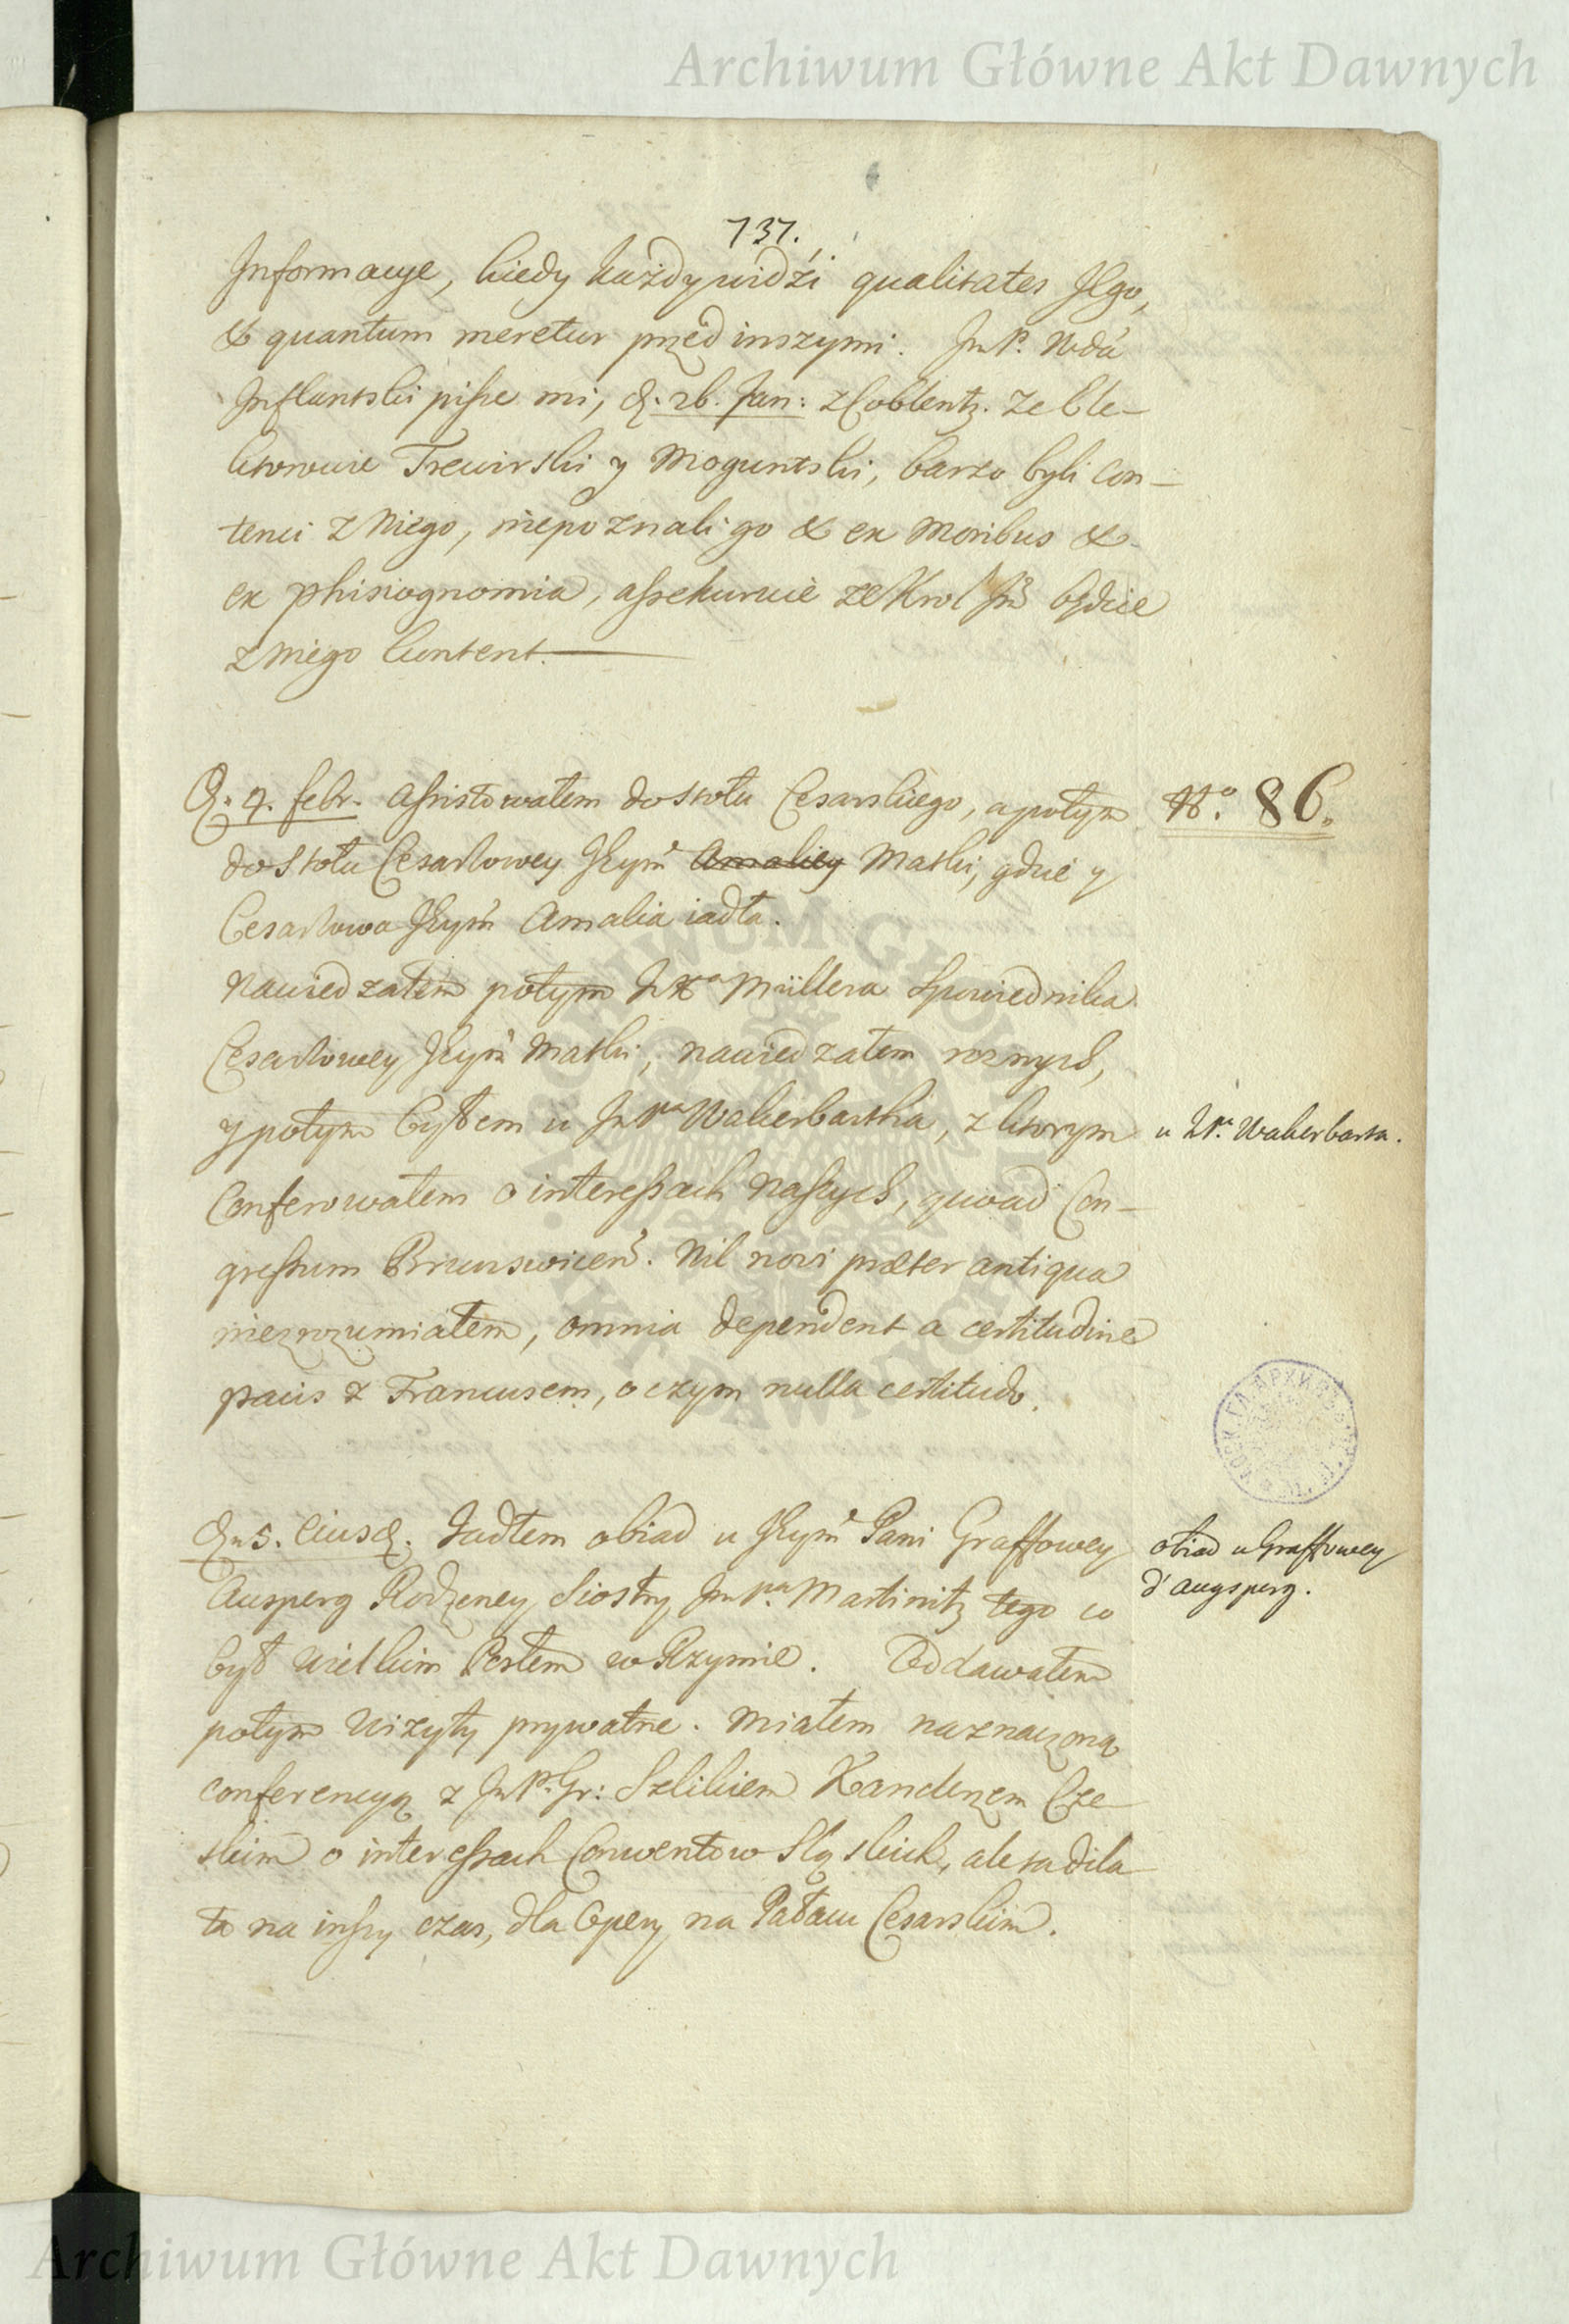 Archiwum Główne Akt Dawnych
737.
Informacye, kiedy każdy widźi qualitates Jego,
& quantum meretur przed inszymi. JmP. Wda
Inflantski pisze mi, d. 26. Jan: z Coblentz. że Ele-
ktorowie Trewirski y Moguntski, barzo byli con-
tenci z Niego, niepoznali go & ex Moribus &
ex phisiognomia, assekuruie ze Krol Jm będzie
z niego kontent.
D. 4. febr. Assistowałem do stołu Cesarskiego, a potym
do stołu Cesarzowey Jeym Amaliey Matki, gdzie y
Cesarzowa Jeym Amalia iadła.
Nawiedzałem potym Müllera Spowiednika
Cesarzowey Jeym Matki, nawiedzałem roznych,
y potym byłem u JmPa Wakerbartha, z ktorym
Conferowałem o interessach Naszych, quoad Con-
gressum Brunswicen. Nil novi præter antiqua
niezrozumiałem, omnia dependent a certitudine
pacis z Francusem, o czym nulla certitudo.
Dn 5. Eiusd. Jadłem obiad u Jeym Pani Graffowey
Ausperg Rodzeney Siostry JmPa Martinitz tego co
był wielkim Posłem w Rzymie. Oddawałem
potym Wizyty prywatne. Miałem naznaczoną
conferencyą z JmP. Gr: Szlikiem Kanclerzem Cze-
skim o interessach Conventow Sląskich, ale ta dila-
ta na inszy czas, dla Opery na Pałacu Cesarskim.
No. 86.
u JP. Wakerbarta.
obiad u Graffowey
d'Augsperg.
Archiwum Główne Akt Dawnych